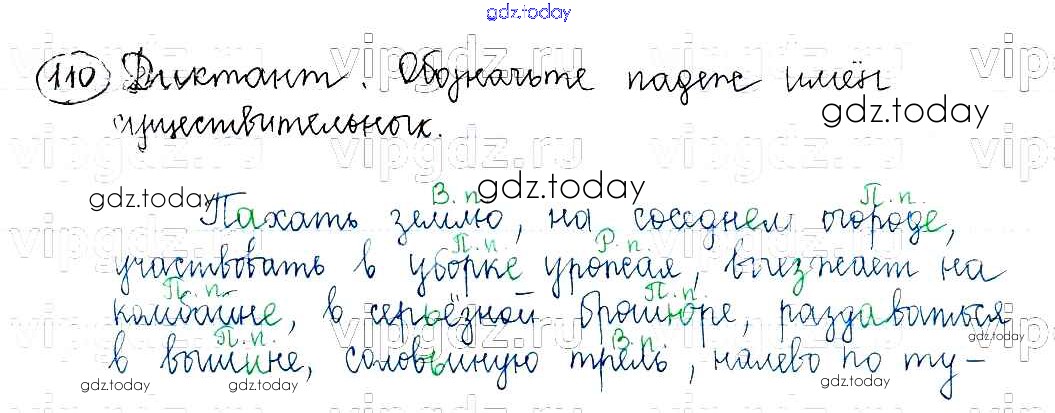 gdz.today
110 Диктант. Обозначьте падеж имён
существительных.
gdz.today
gdz.today gdz.today
В.п. П.п.
Пахать землю, на соседнем огороде,
П.п. Р.п.
участвовать в уборке урожая, выезжает на
П.п. П.п.
комбайне, в серьёзной брошюре, раздаваться
П.п. В.п.
в вышине, соловьиную трель, налево по ту-
gdz.today gdz.today gdz.today gdz.today